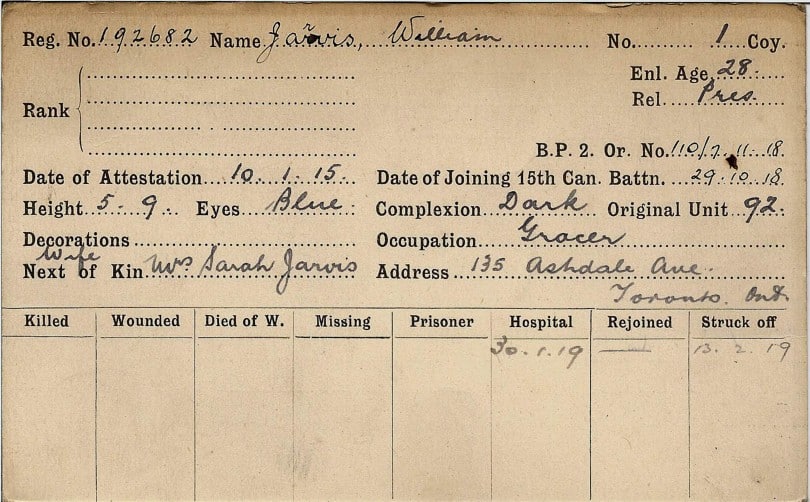 Reg. No. 192682 Name Jarvis, William No. 1 Coy.
Enl. Age 28.
Rel. Pres.
Rank
B.P. 2. Or. No. 110/7.11.18.
Date of Attestation 10.1.15. Date of Joining 15th Can. Battn. 29.10.18
Height 5.9. Eyes Blue. Complexion Dark Original Unit 92.
Decorations Occupation Grocer
Wife
Next of Kin Mrs Sarah Jarvis Address 135 Ashdale Ave.
Toronto. Ont.
Killed Wounded Died of W. Missing Prisoner Hospital Rejoined Struck off
30.1.19 — 13.2.19